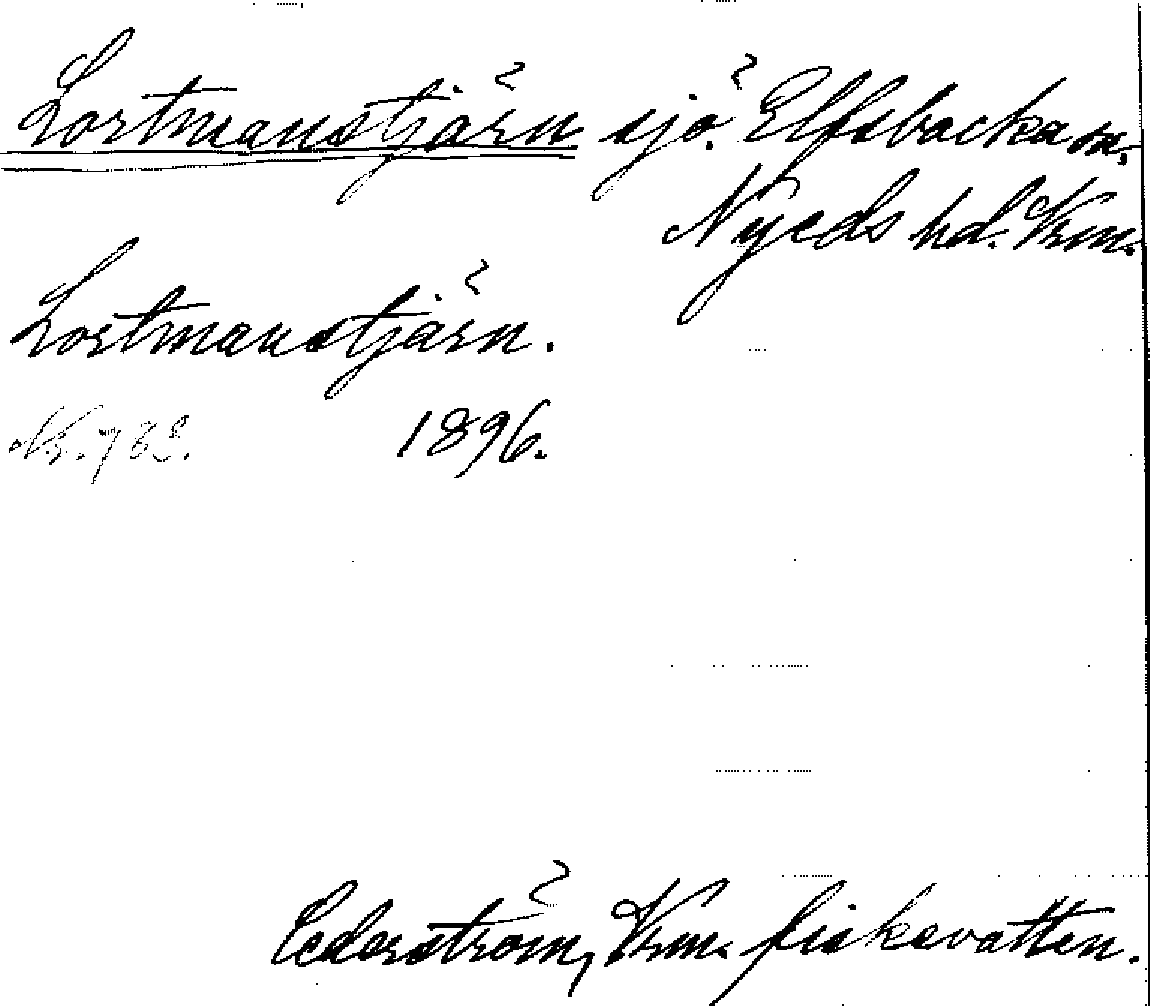 Lortmanstjärn sjö. Elfsbacka sn.
Nyeds hd. Vrm.
Lortmanstjärn.
Nr. 782. 1896.
Cederström, Vrm. fiskevatten.